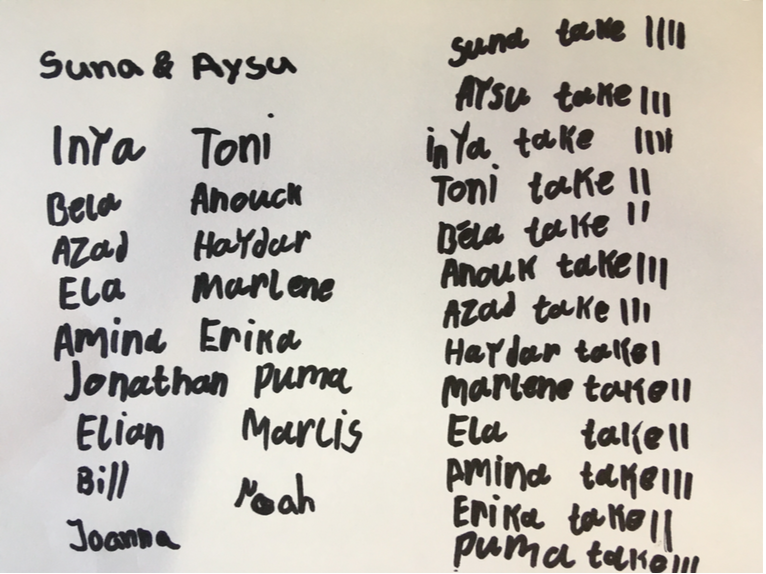 Suna & Aysu
InYa Toni
Bela Anouck
AZad HaYdar
Ela Marlene
Amina Erika
Jonathan Puma
Elian Marlis
Bill Noah
Joanna
Suna take ||||
AYsu take |||
inYa take ||||
Toni take ||
Béla take ||
Anouk take |||
AZad take |||
HaYdar take |
Marlene take ||
Ela take ||
Amina take |||
Erika take ||
Puma take |||